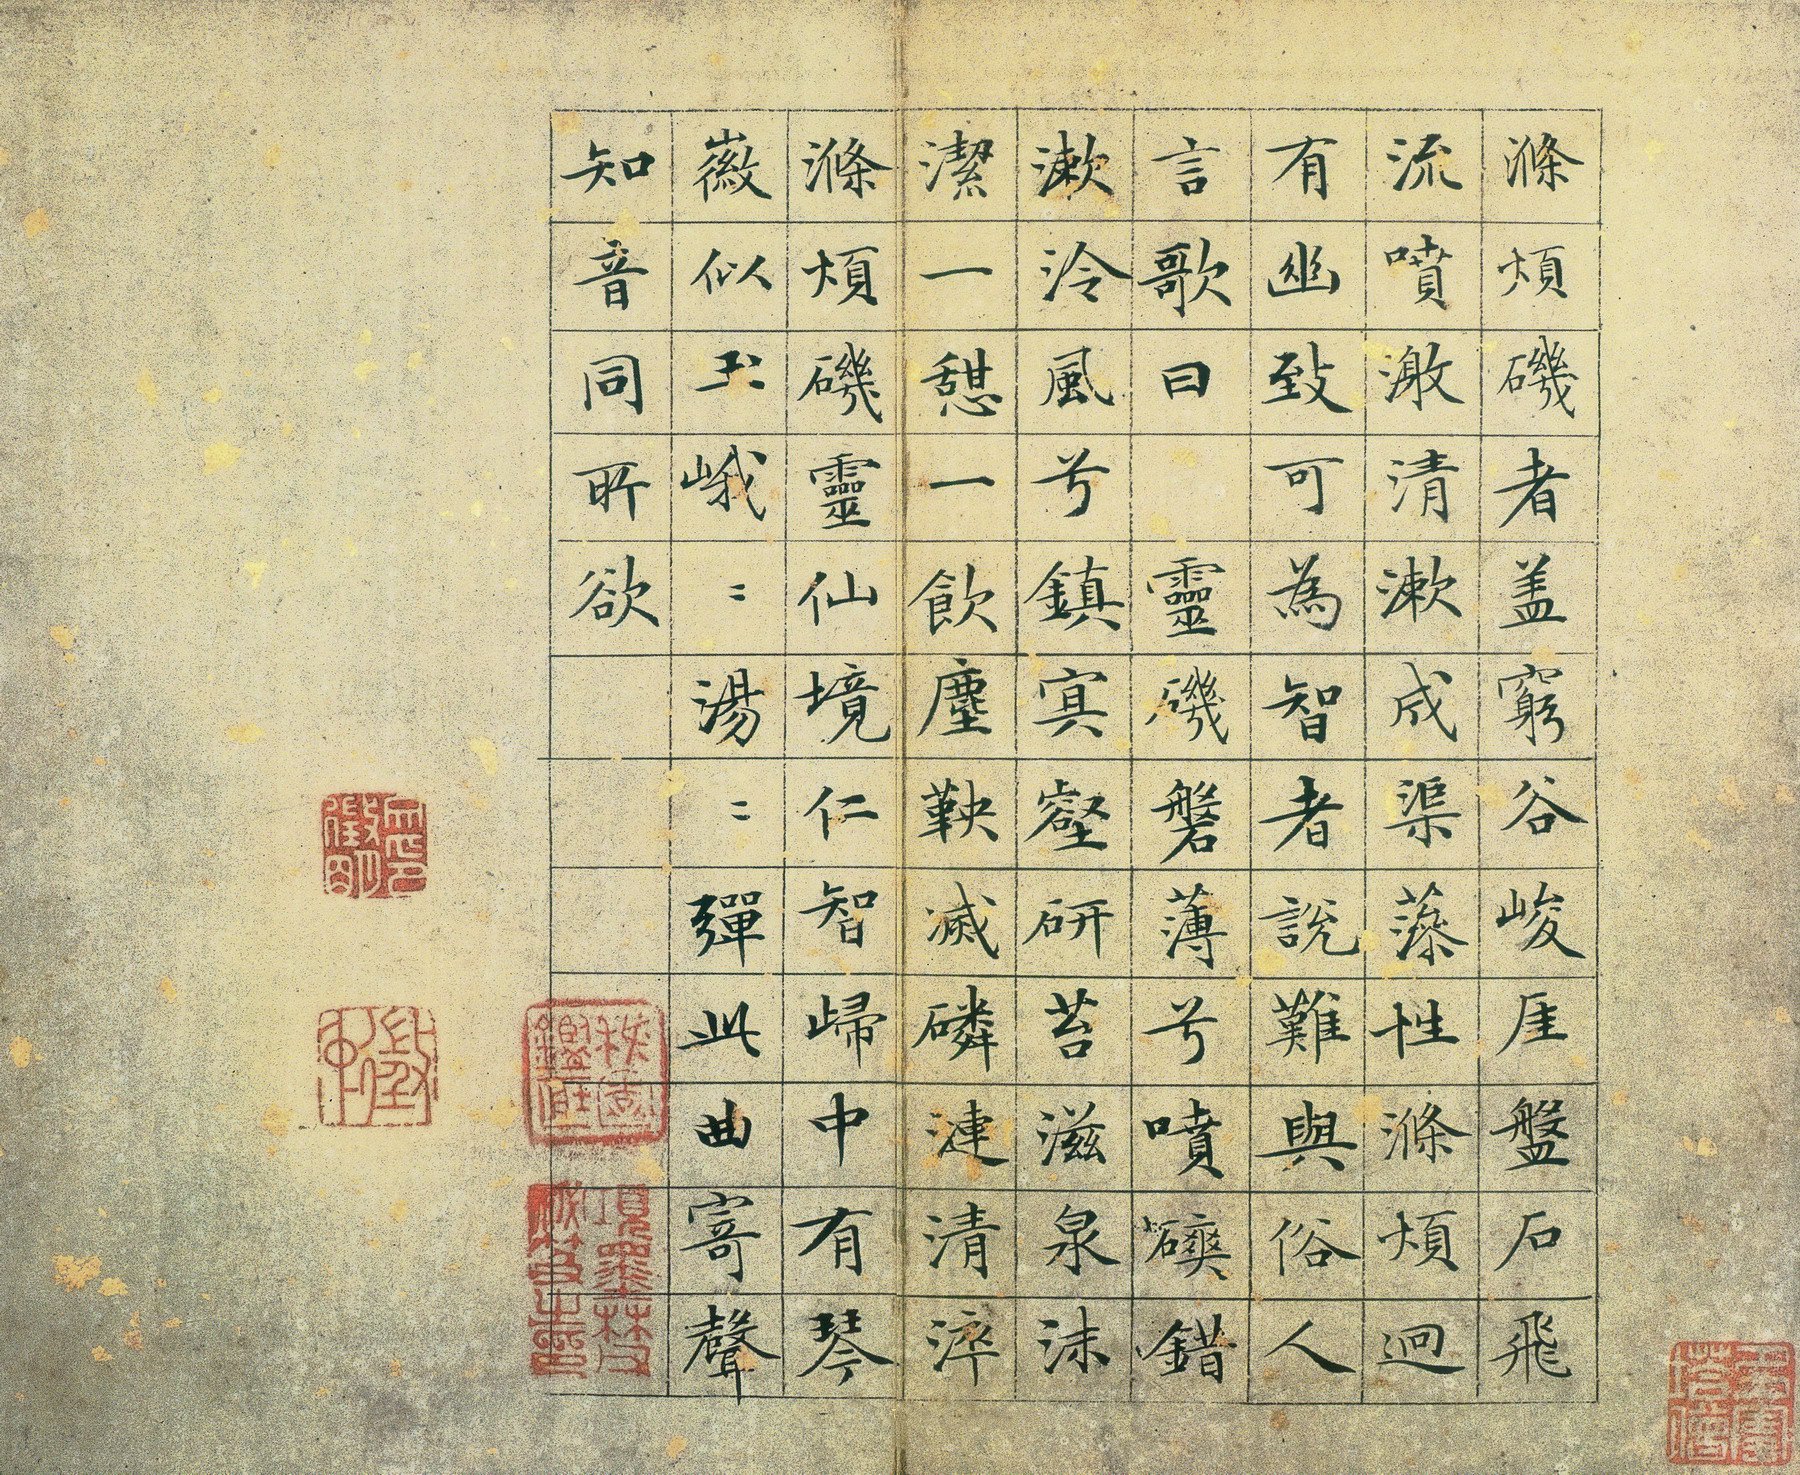 滌煩磯者盖窮谷峻厓盤石飛
流噴激清漱成渠藻性滌煩迴
有幽致可為智者說難與俗人
言歌曰 靈磯磐薄兮噴磢錯
漱泠風兮鎮冥壑研苔滋泉沫
潔一憩一飲塵鞅滅磷漣清淬
滌煩磯靈仙境仁智歸中有琴
徽似玉峨〻湯〻彈此曲寄聲
知音同所欲
項墨林父
祕笈之印